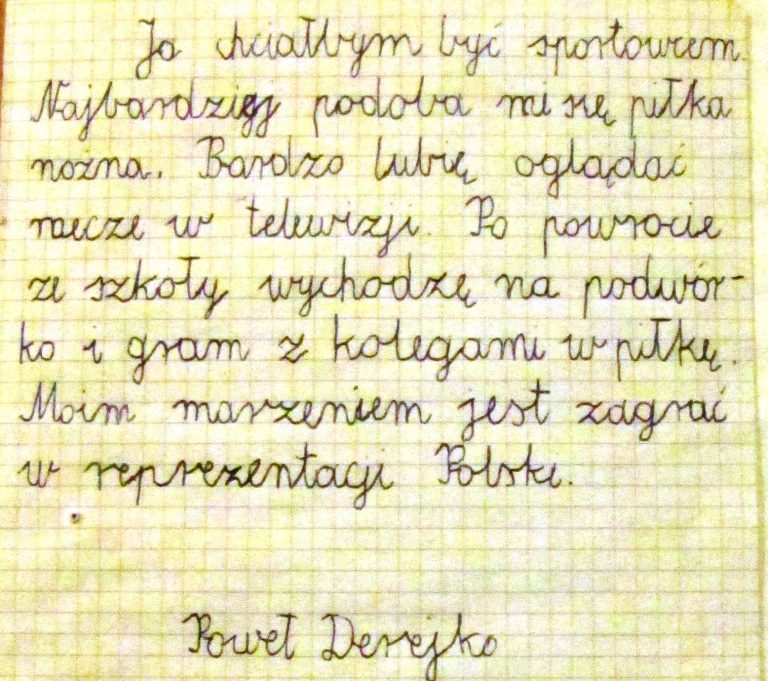 Ja chciałbym być sportowcem.
Najbardziej podoba mi się piłka
nożna. Bardzo lubię oglądać
mecze w telewizji. Po powrocie
ze szkoły wychodzę na podwór-
ko i gram z kolegami w piłkę.
Moim marzeniem jest zagrać
w reprezentacji Polski.
Paweł Derejko